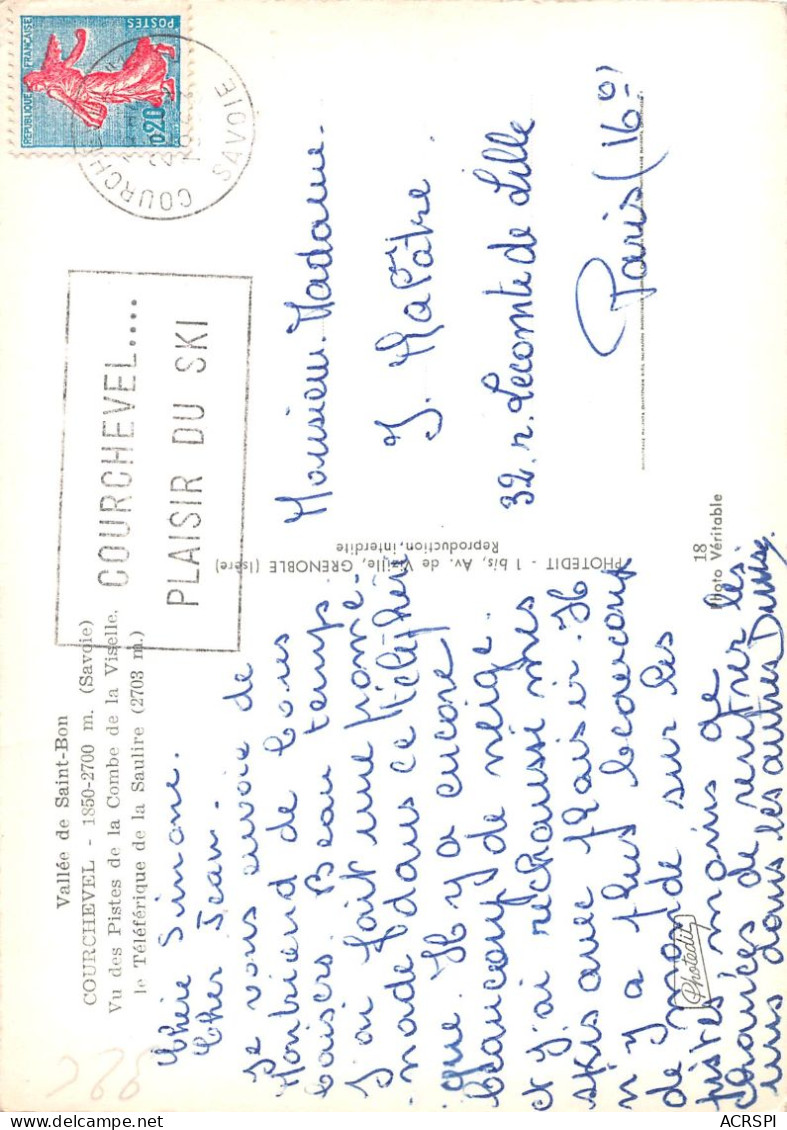 Vallée de Saint-Bon
COURCHEVEL - 1850-2700 m. (Savoie)
Vu des Pistes de la Combe de la Viselle,
le Téléférique de la Saulire (2703 m.)
Chère Simone.
Cher Jean.
Je vous envoie de
bons
baisers. Beau temps
J'ai fait une prome-
nade dans ce téléphéri
que. Il y a encore
beaucoup de neige.
et j'ai rechaussé mes
skis avec plaisir. Il
n'y a plus beaucoup
de monde sur les
pistes, moins de
chances de rentrer les
uns dans les autres
Photédit
PHOTEDIT - 1 bis, Av. de Vizille, GRENOBLE (Isère)
Reproduction interdite
18
Photo Véritable
COURCHEVEL....
PLAISIR DU SKI
COURCHEVEL
SAVOIE
REPUBLIQUE FRANÇAISE
POSTES
0,20
Monsieur. Madame.
J. Malâtre
32. r. Lecomte de Lille
Paris (16e)
ACRSPI